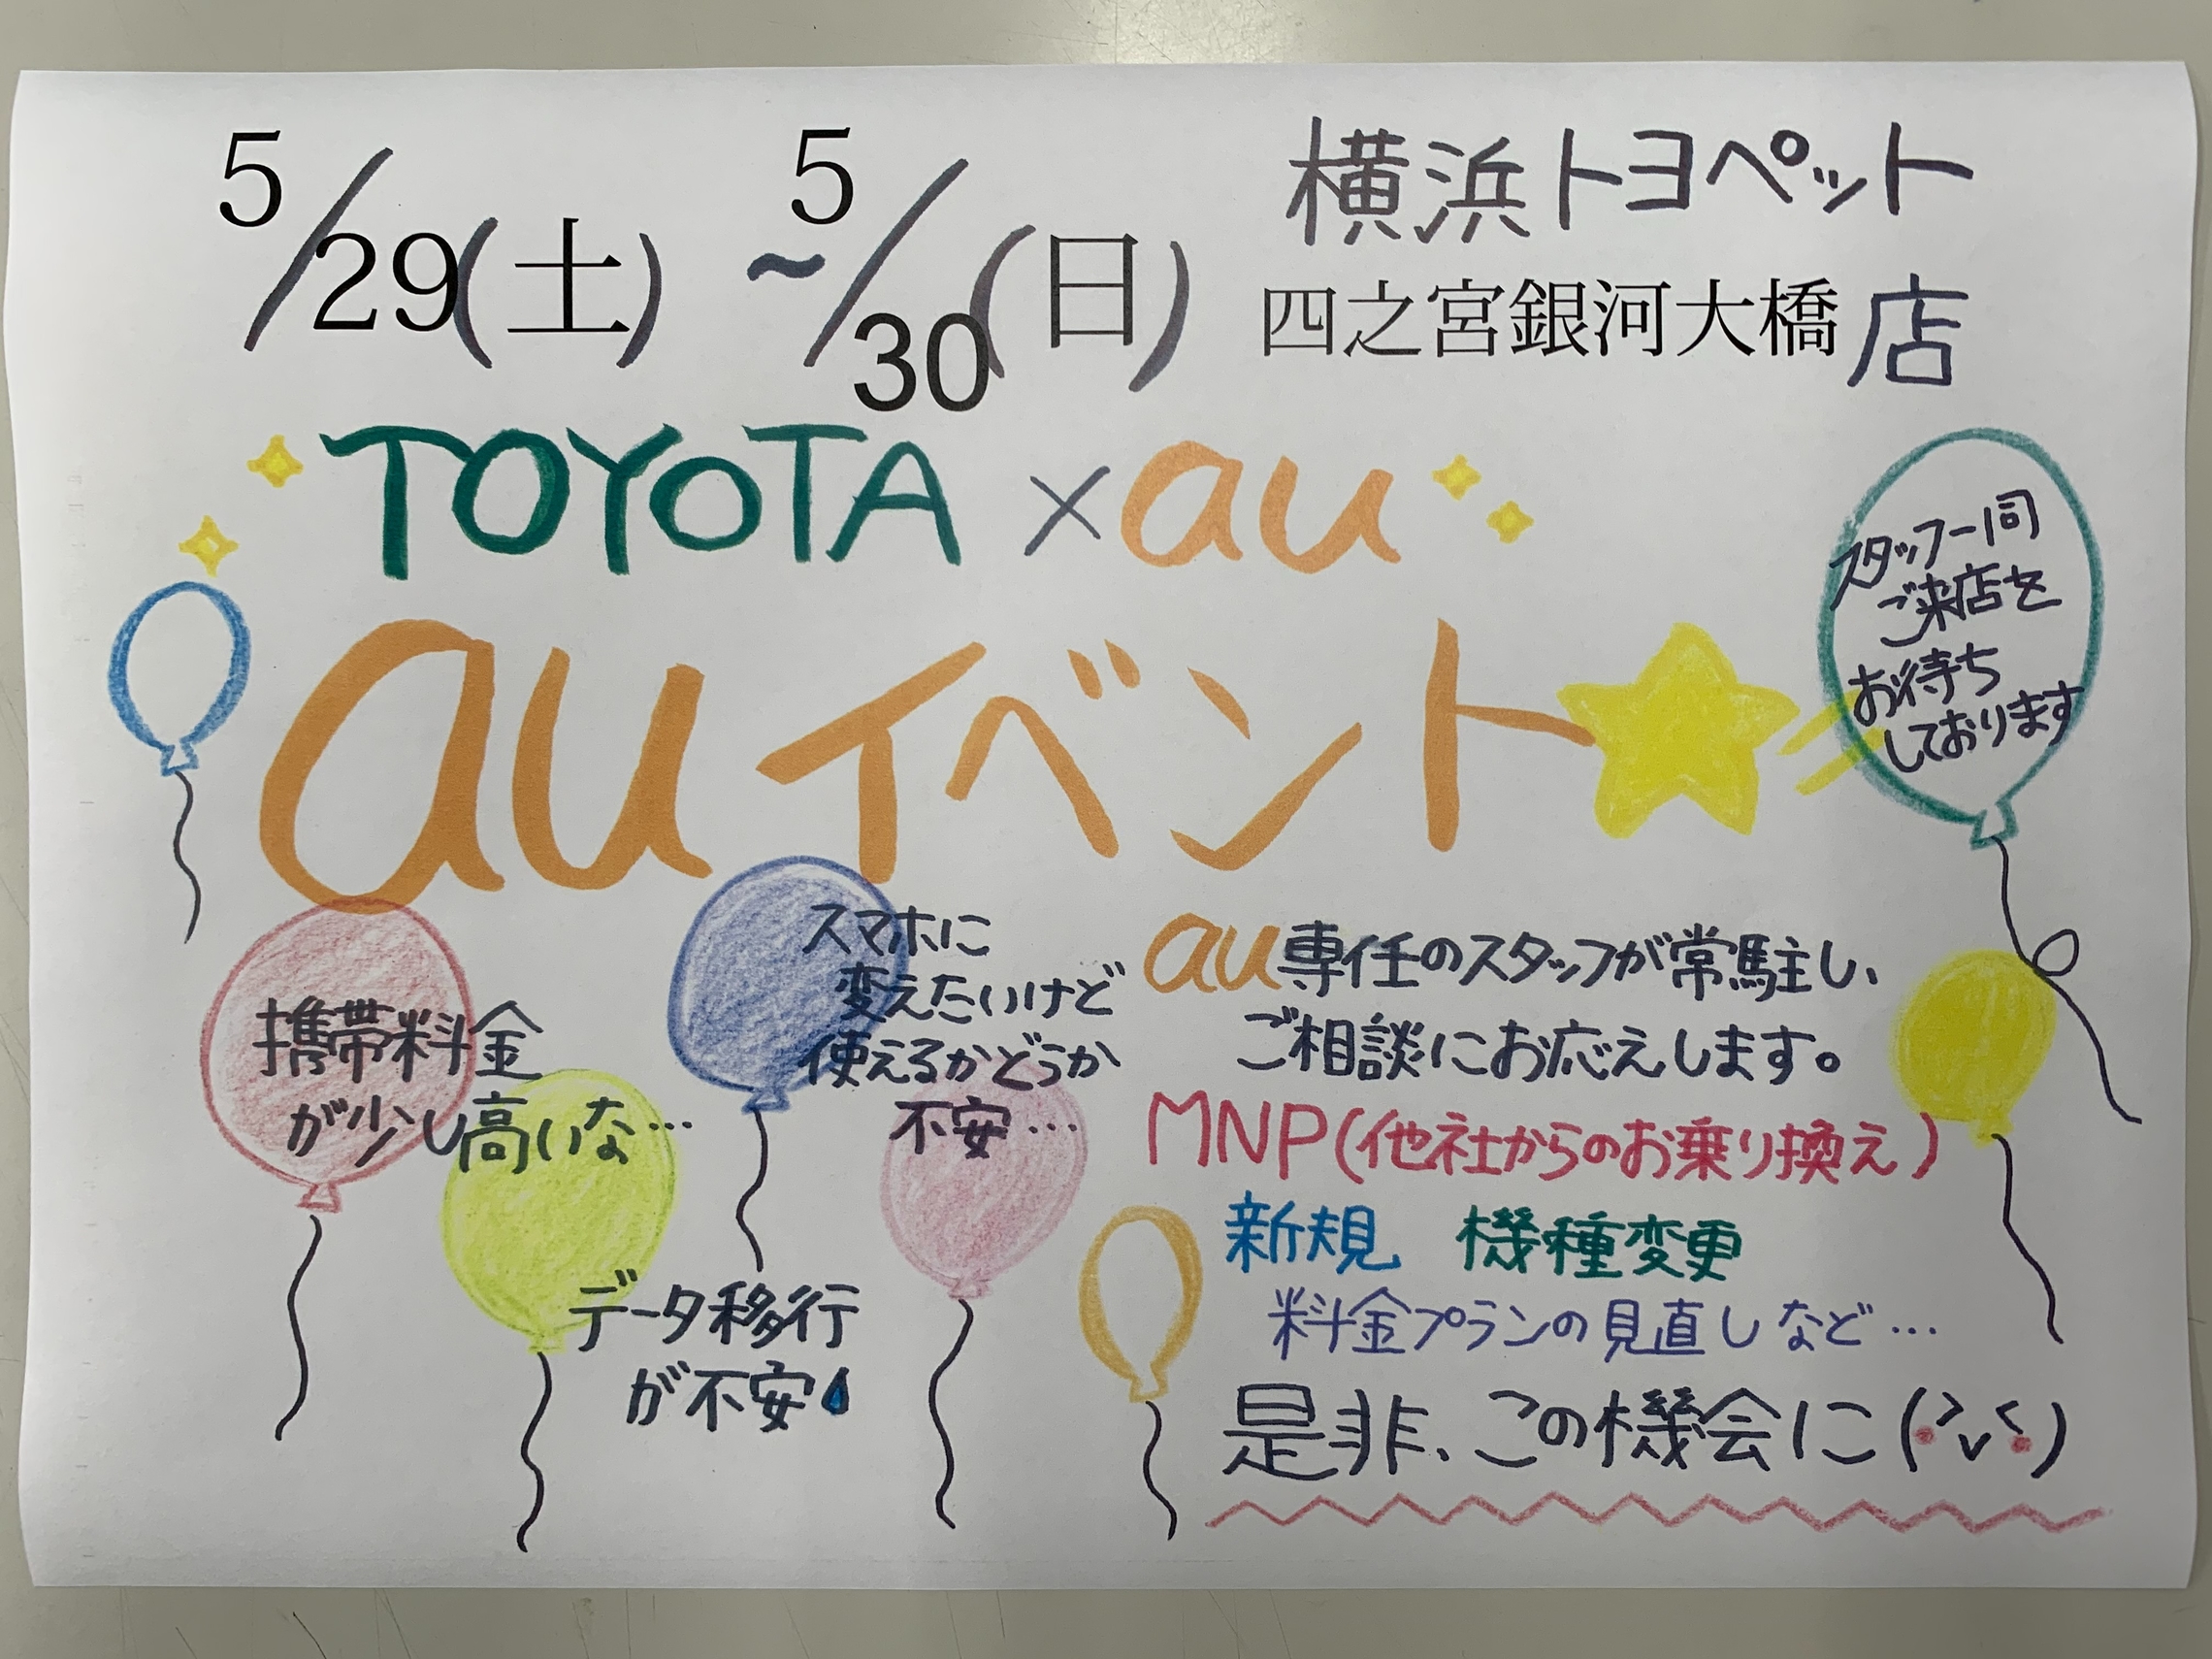 5/29(土) ~5/30(日)
横浜トヨペット
四之宮銀河大橋店
TOYOTA×au
auイベント
スタッフ一同
ご来店を
お待ち
しております
携帯料金
が少し高いな…
スマホに
変えたいけど
使えるかどうか
不安…
データ移行
が不安
au専任のスタッフが常駐し、
ご相談にお応えします。
MNP(他社からのお乗り換え)
新規 機種変更
料金プランの見直しなど…
是非、この機会に(>v<)